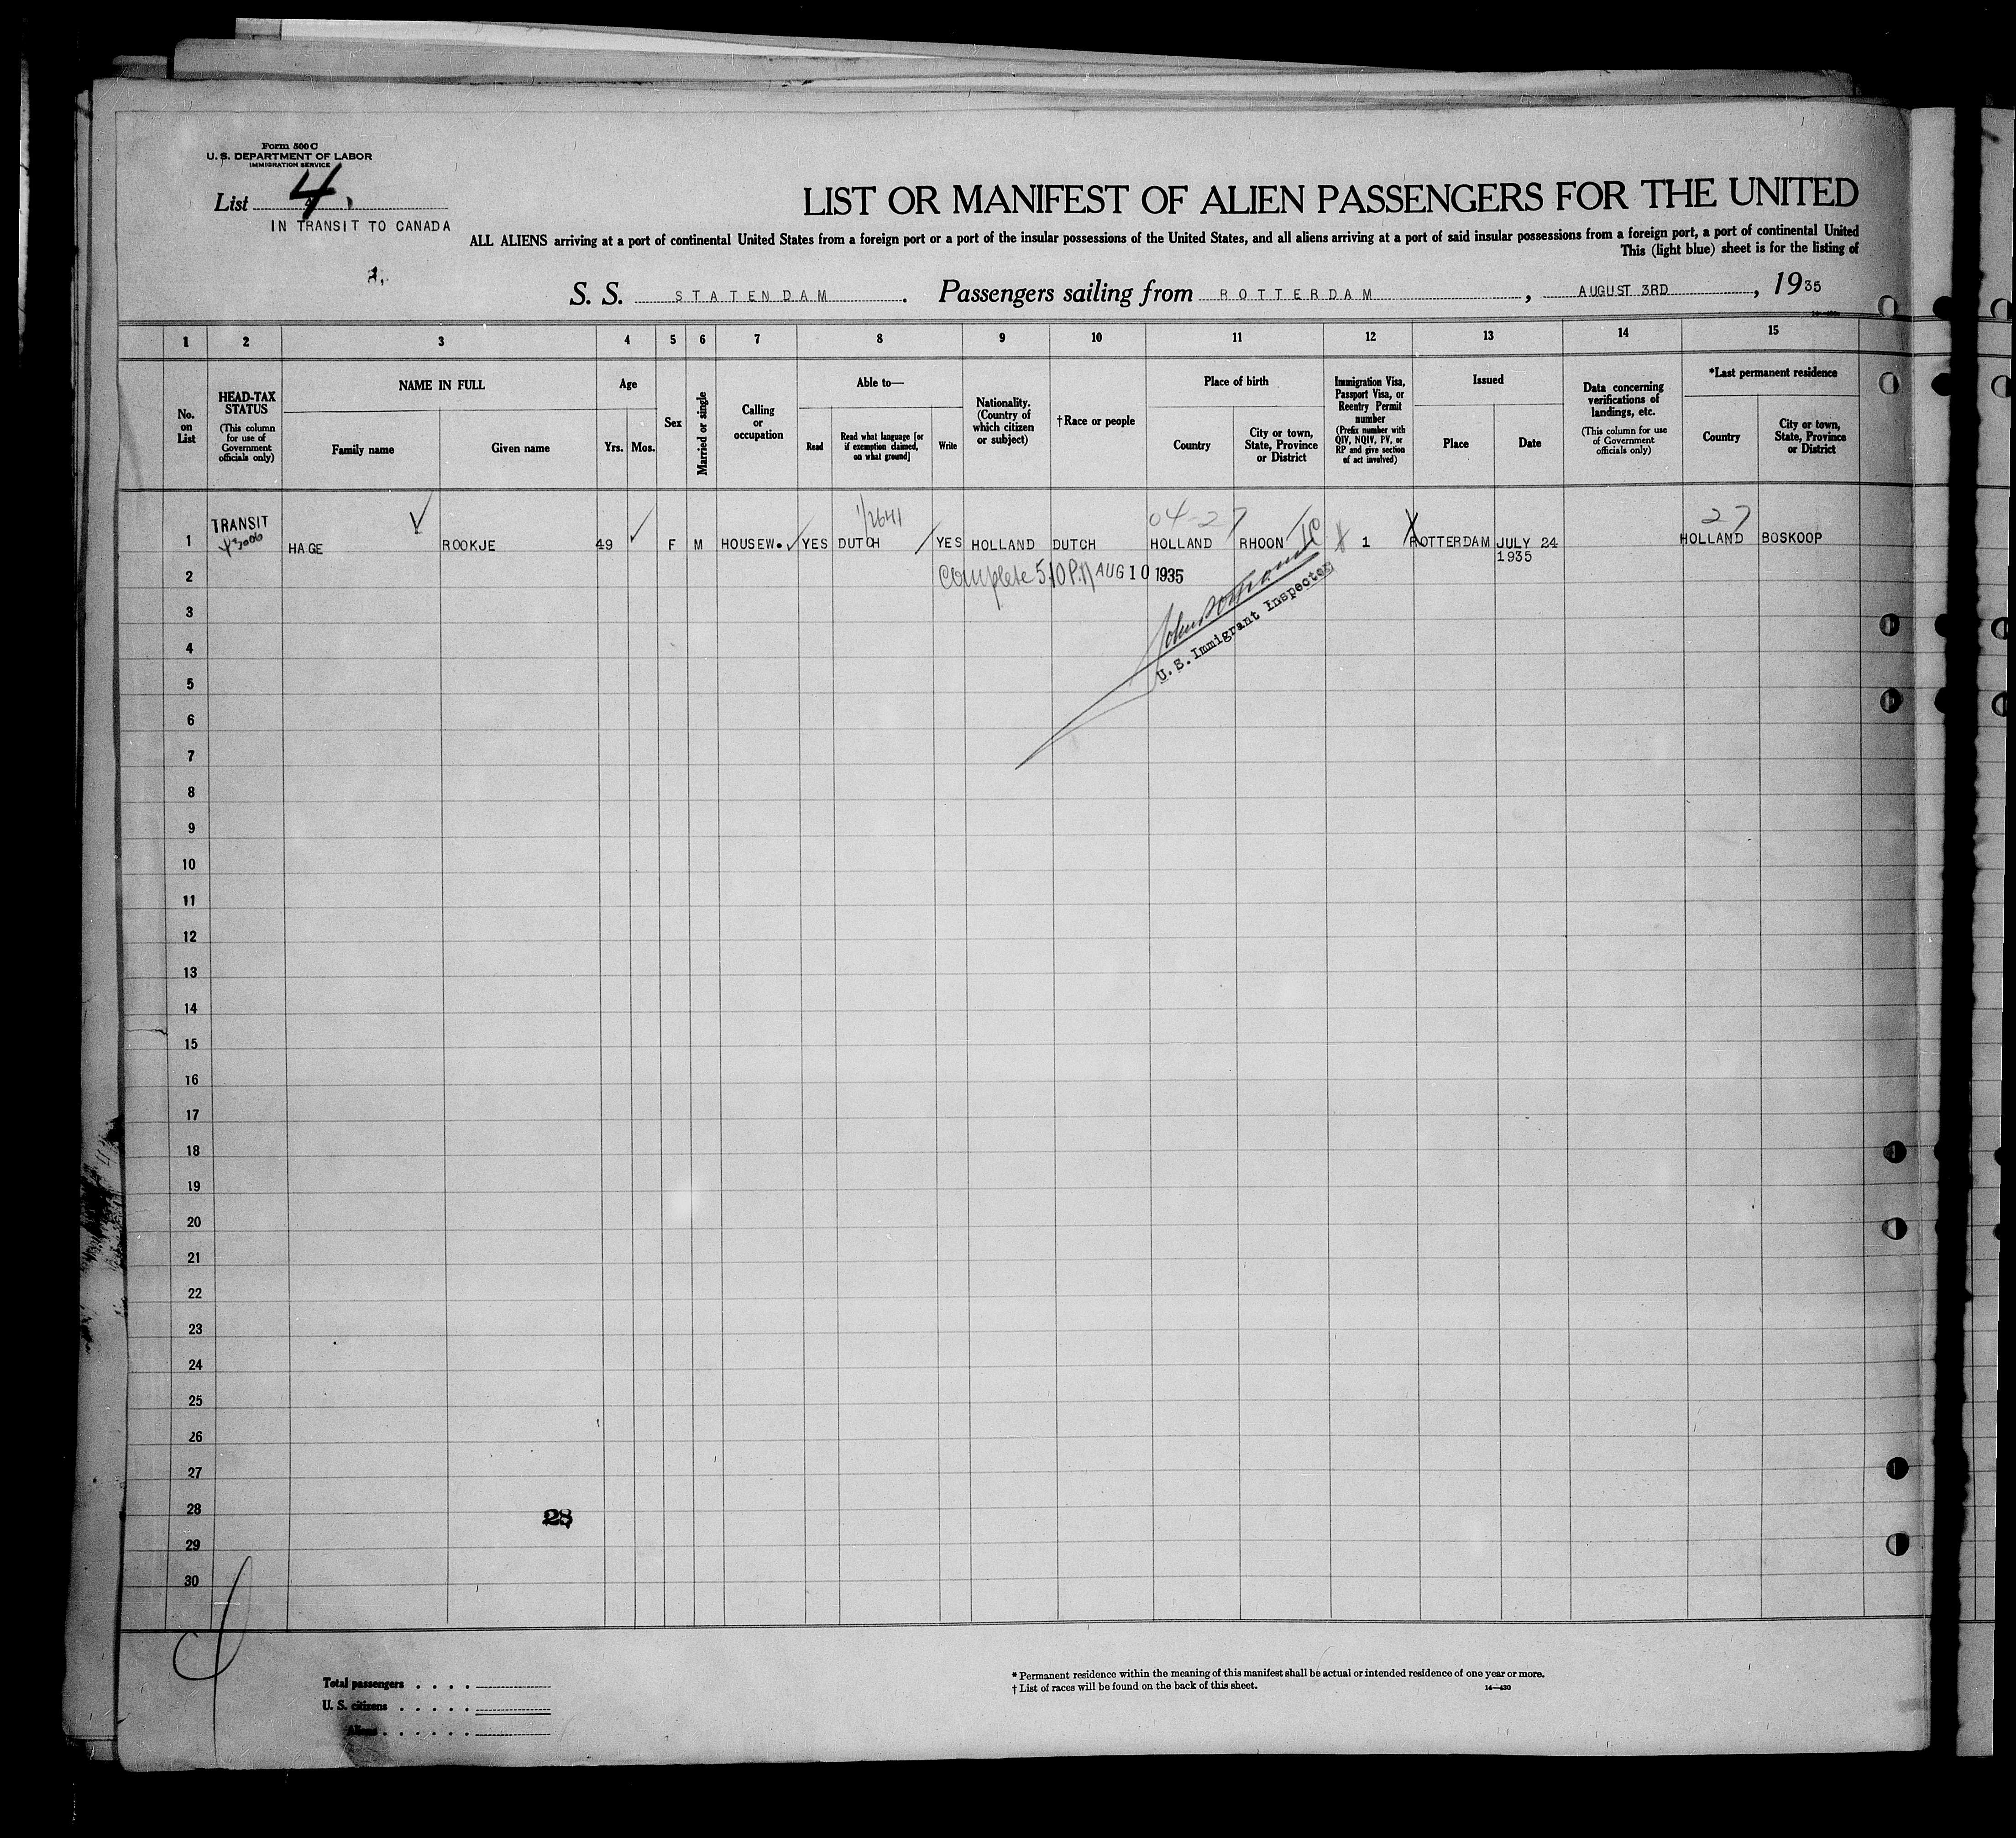 Form 500 C
U. S. DEPARTMENT OF LABOR
IMMIGRATION SERVICE
List 4.
IN TRANSIT TO CANADA
LIST OR MANIFEST OF ALIEN PASSENGERS FOR THE UNITED
ALL ALIENS arriving at a port of continental United States from a foreign port or a port of the insular possessions of the United States, and all aliens arriving at a port of said insular possessions from a foreign port, a port of continental United
This (light blue) sheet is for the listing of
S. S. STATENDAM. Passengers sailing from ROTTERDAM, AUGUST 3RD, 1935
1 2 3 4 5 6 7 8 9 10 11 12 13 14 15
No. on List
HEAD-TAX STATUS (This column for use of Government officials only)
NAME IN FULL
Family name
Given name
Age
Yrs.
Mos.
Sex
Married or single
Calling or occupation
Able to—
Read
Read what language [or if exemption claimed, on what ground]
Write
Nationality. (Country of which citizen or subject)
†Race or people
Place of birth
Country
City or town, State, Province or District
Immigration Visa, Passport Visa, or Reentry Permit number (Prefix number with QIV, NQIV, PV, or RP and give section of act involved)
Issued
Place
Date
Data concerning verifications of landings, etc. (This column for use of Government officials only)
*Last permanent residence
Country
City or town, State, Province or District
TRANSIT
04-27
27
1 HAGE ROOKJE 49 F M HOUSEW. YES DUTCH YES HOLLAND DUTCH HOLLAND RHOON 1 ROTTERDAM JULY 24 1935 HOLLAND BOSKOOP
2 Complete AUG 10 1935
U. S. Immigrant Inspector
3
4
5
6
7
8
9
10
11
12
13
14
15
16
17
18
19
20
21
22
23
24
25
26
27
28 28
29
30
Total passengers . . . .
U. S. citizens . . . . .
Aliens . . . . . .
* Permanent residence within the meaning of this manifest shall be actual or intended residence of one year or more.
† List of races will be found on the back of this sheet.
14—430